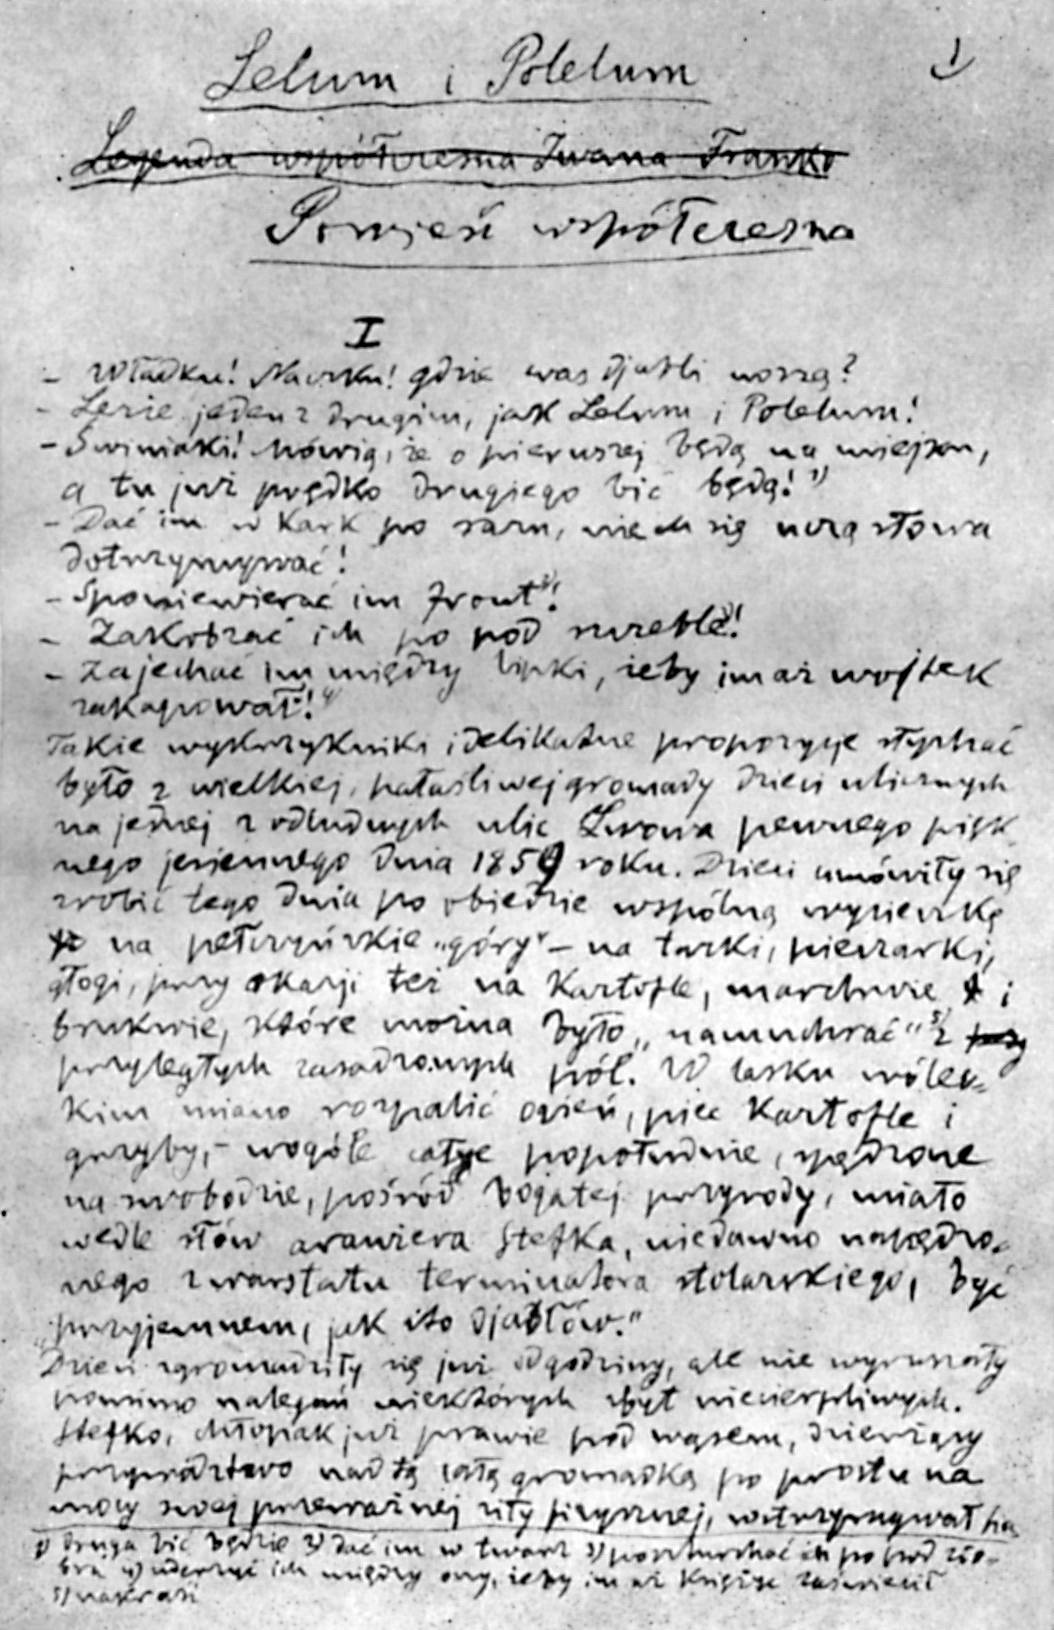 Lelum i Polelum
1
Legenda współczesna Iwana Franko
Powieść współczesna
I
– Władku! Nawrku! gdzie was djabli noszą?
– Lezie jeden z drugim, jak Lelum i Polelum!
– Świniaki! Mówią, że o pierwszej będą na miejscu,
a tu już prędko drugiego bić będą! 1)
– Dać im w kark po razu, niech się uczą słowa
dotrzymywać!
– Sponiewierać im front 2)!
– Zakobzać ich po pod szczeble 3)!
– Zajechać im między lipki, żeby im aż wojtek
zakapował! 4)
Takie wykrzykniki i delikatne propozycje słychać
było z wielkiej, hałaśliwej gromady dzieci ulicznych
na jednej z odludnych ulic Lwowa pewnego pięk
nego jesiennego dnia 1859 roku. Dzieci umówiły się
zrobić tego dnia po obiedzie wspólną wycieczkę
na pełczyńskie „góry" – na tarki, pieczarki,
głogi, przy okazji też na kartofle, marchwie i
brukwie, które można było „namuchrać" 5) z
przyległych zasadzonych pól. W lasku wólec-
kim miano rozpalić ogień, piec kartofle i
grzyby, – wogóle całe popołudnie, spędzone
na swobodzie, pośród bogatej przyrody, miało
wedle słów Stefka, niedawno napędzo-
nego z warstatu terminatora stolarskiego, być
„przyjemnem, jak sto djabłów."
Dzieci zgromadziły się już od godziny, ale nie wyruszały
pomimo nalegań niektórych zbyt niecierpliwych.
Stefko, chłopiak już prawie pod wąsem, dzierżący
przywództwo nad tą całą gromadką po prostu na
mocy swej przeważnej siły fizycznej, wstrzymywał
1) druga bić będzie 2) dać im w twarz 3) poszturchać ich po pod żeb-
bra 4) uderzyć ich między oczy, żeby im aż księżyc zaświecił
5) nakraść